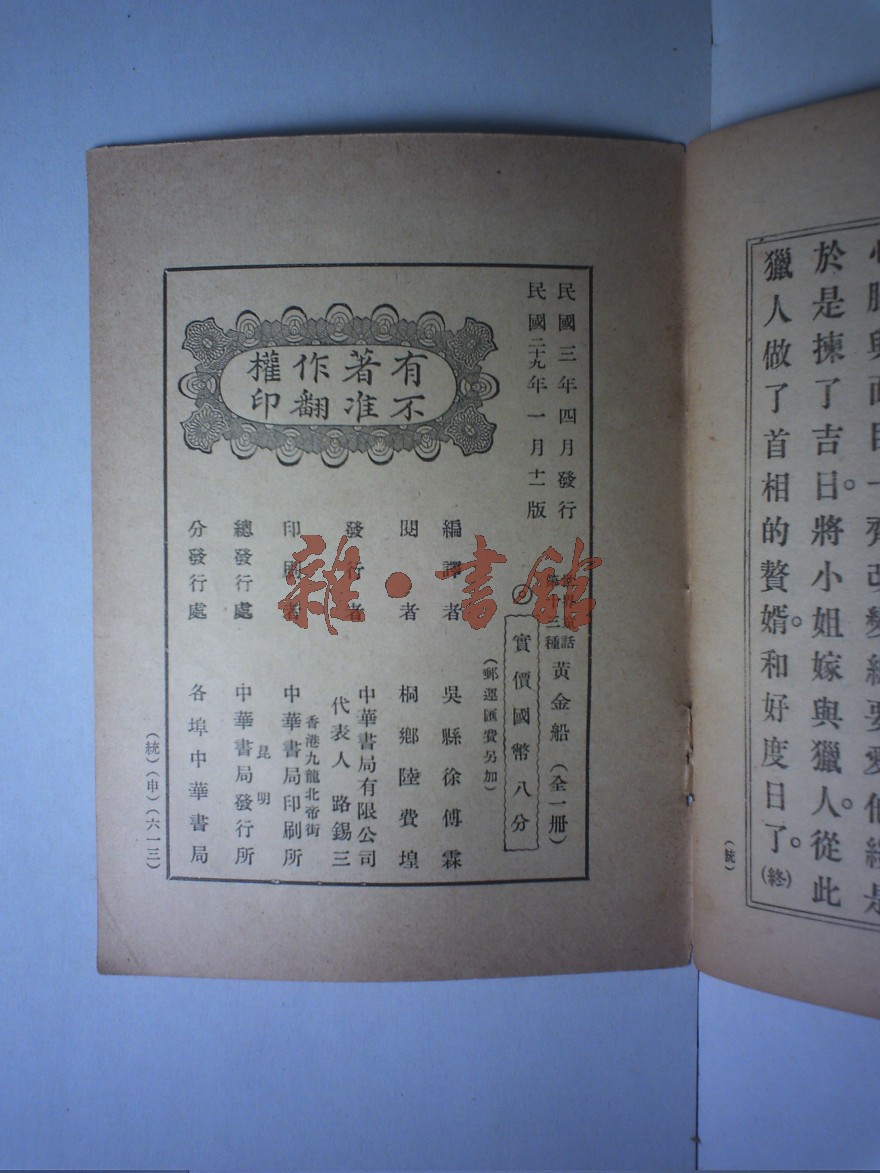 心腸與面目一齊改變總要愛他纔是
於是揀了吉日。將小姐嫁與獵人。從此
獵人做了首相的贅婿。和好度日了。(終)
(統)
民國三年四月發行
民國二十九年一月十一版
世界童話
第十三種
黃金船(全一冊)
◎實價國幣八分
(郵運匯費另加)
編譯者 吳縣徐傅霖
閱者 桐鄉陸費堭
發行者 中華書局有限公司
代表人路錫三
印刷者 香港九龍北帝街
中華書局印刷所
總發行處 昆明
中華書局發行所
分發行處 各埠中華書局
有著作權
不准翻印
(統)(申)(六一三)
雜·書館